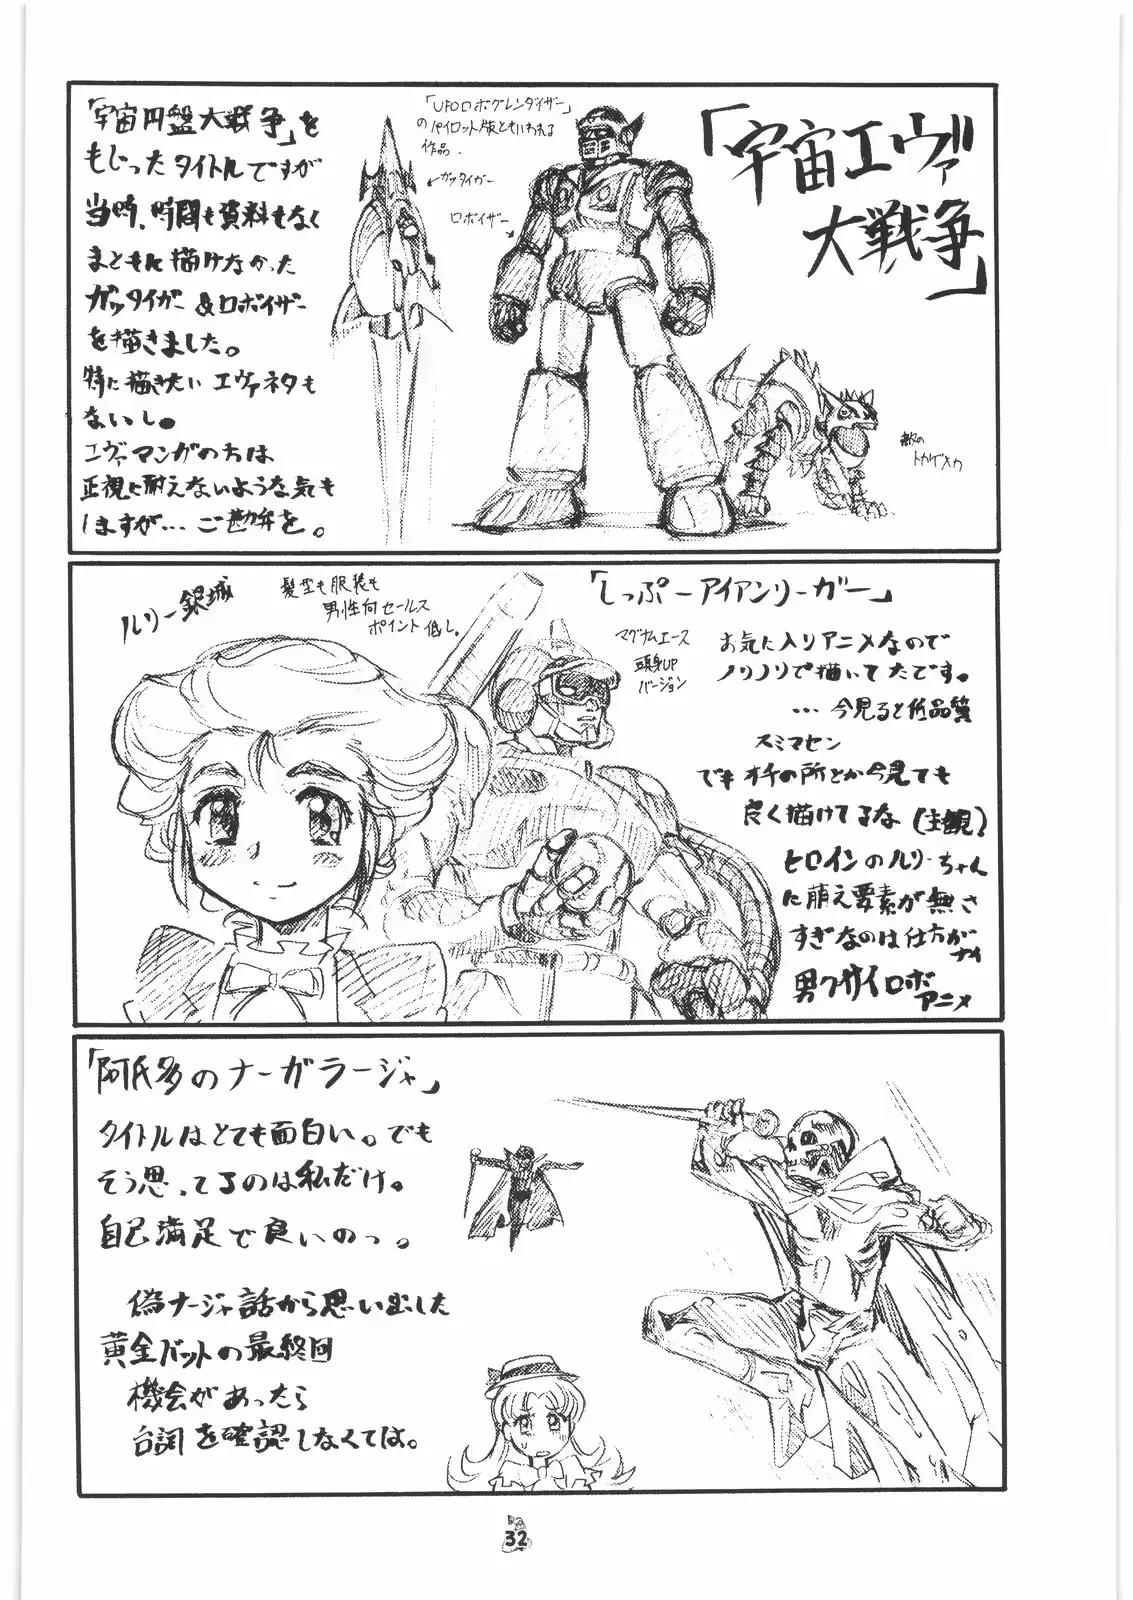 「宇宙エヴァ
大戦争」
「宇宙円盤大戦争」を
もじったタイトルですが
当時、時間も資料もなく
まともに描けなかった
ガッタイガー&ロボイザー
を描きました。
特に描きたいエヴァネタも
ないし。
エヴァマンガの方は
正視に耐えないような気も
しますが…ご勘弁を。
「UFOロボグレンダイザー」
のパイロット版ともいわれる
作品.
ガッタイガー
ロボイザー
敵の
トカゲメカ
「しっぷーアイアンリーガー」
お気に入りアニメなので
ノリノリで描いてたです。
…今見ると作品
スミマセン
でもオチの所とか今見ても
良く描けてるな(主観)
ヒロインのルリーちゃん
に萌え要素が無さ
すぎなのは仕方が
ナイ
男クサイロボ
アニメ
ルリー銀城
髪型も服装も
男性向セールス
ポイント低し。
マグナムエース
頭身UP
バージョン
「阿氏多のナーガラージャ」
タイトルはとても面白い。でも
そう思ってるのは私だけ。
自己満足で良いのっ。
偽ナージャ話から思い出した
黄金バットの最終回
機会があったら
台詞を確認しなくては。
32